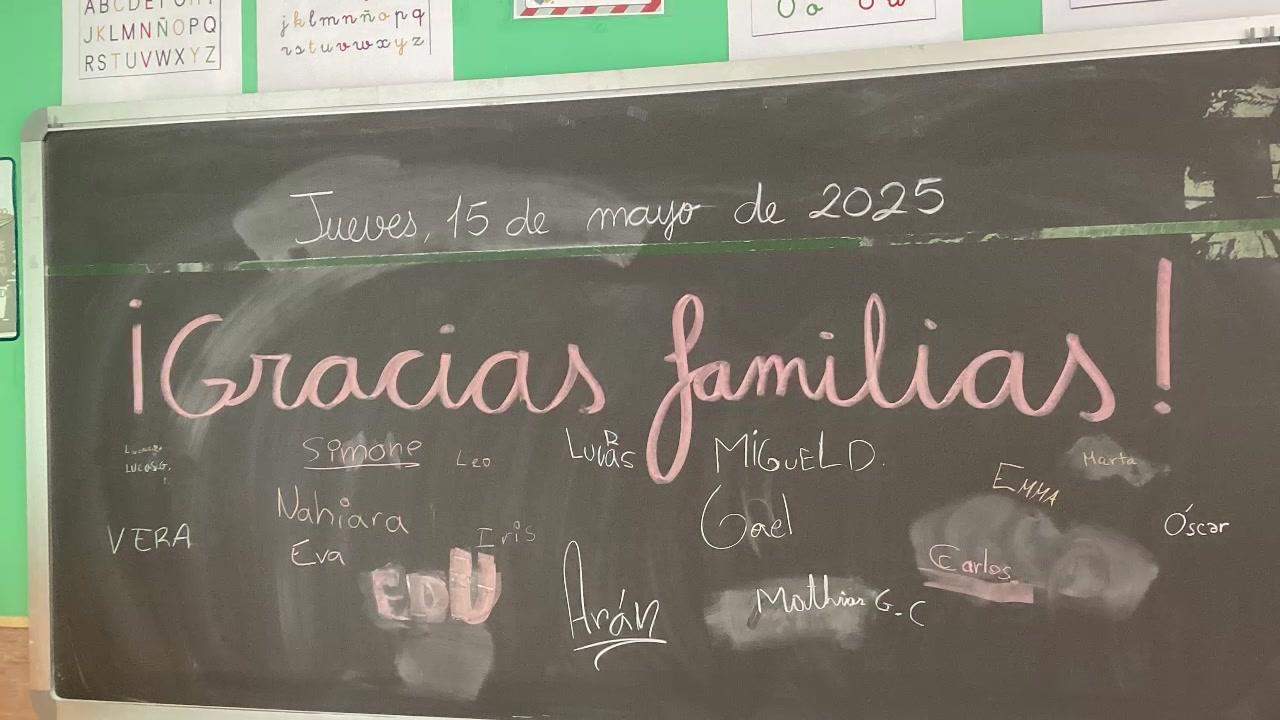 ABCDEFGHI
JKLMNÑOPQ
RSTUVWXYZ
jklmnñopq
rstuvwxyz
O o
Jueves, 15 de mayo de 2025
¡Gracias familias!
LUCASG.
Simone
Leo
Lucas
D
MiGUEL D.
Marta
EMMA
Nahiara
Gael
Óscar
VERA
Eva
Iris
Carlos
EDU
Arán
Mathias G.C